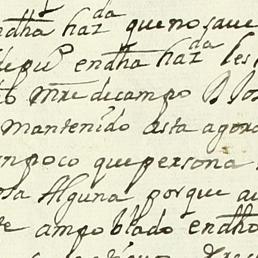 endha hazda que no save
depu° endha hazda les
mre de campo D Jos
mantenido asta agora
npoco que persona
osa Alguna porque au
te ampoblado endho